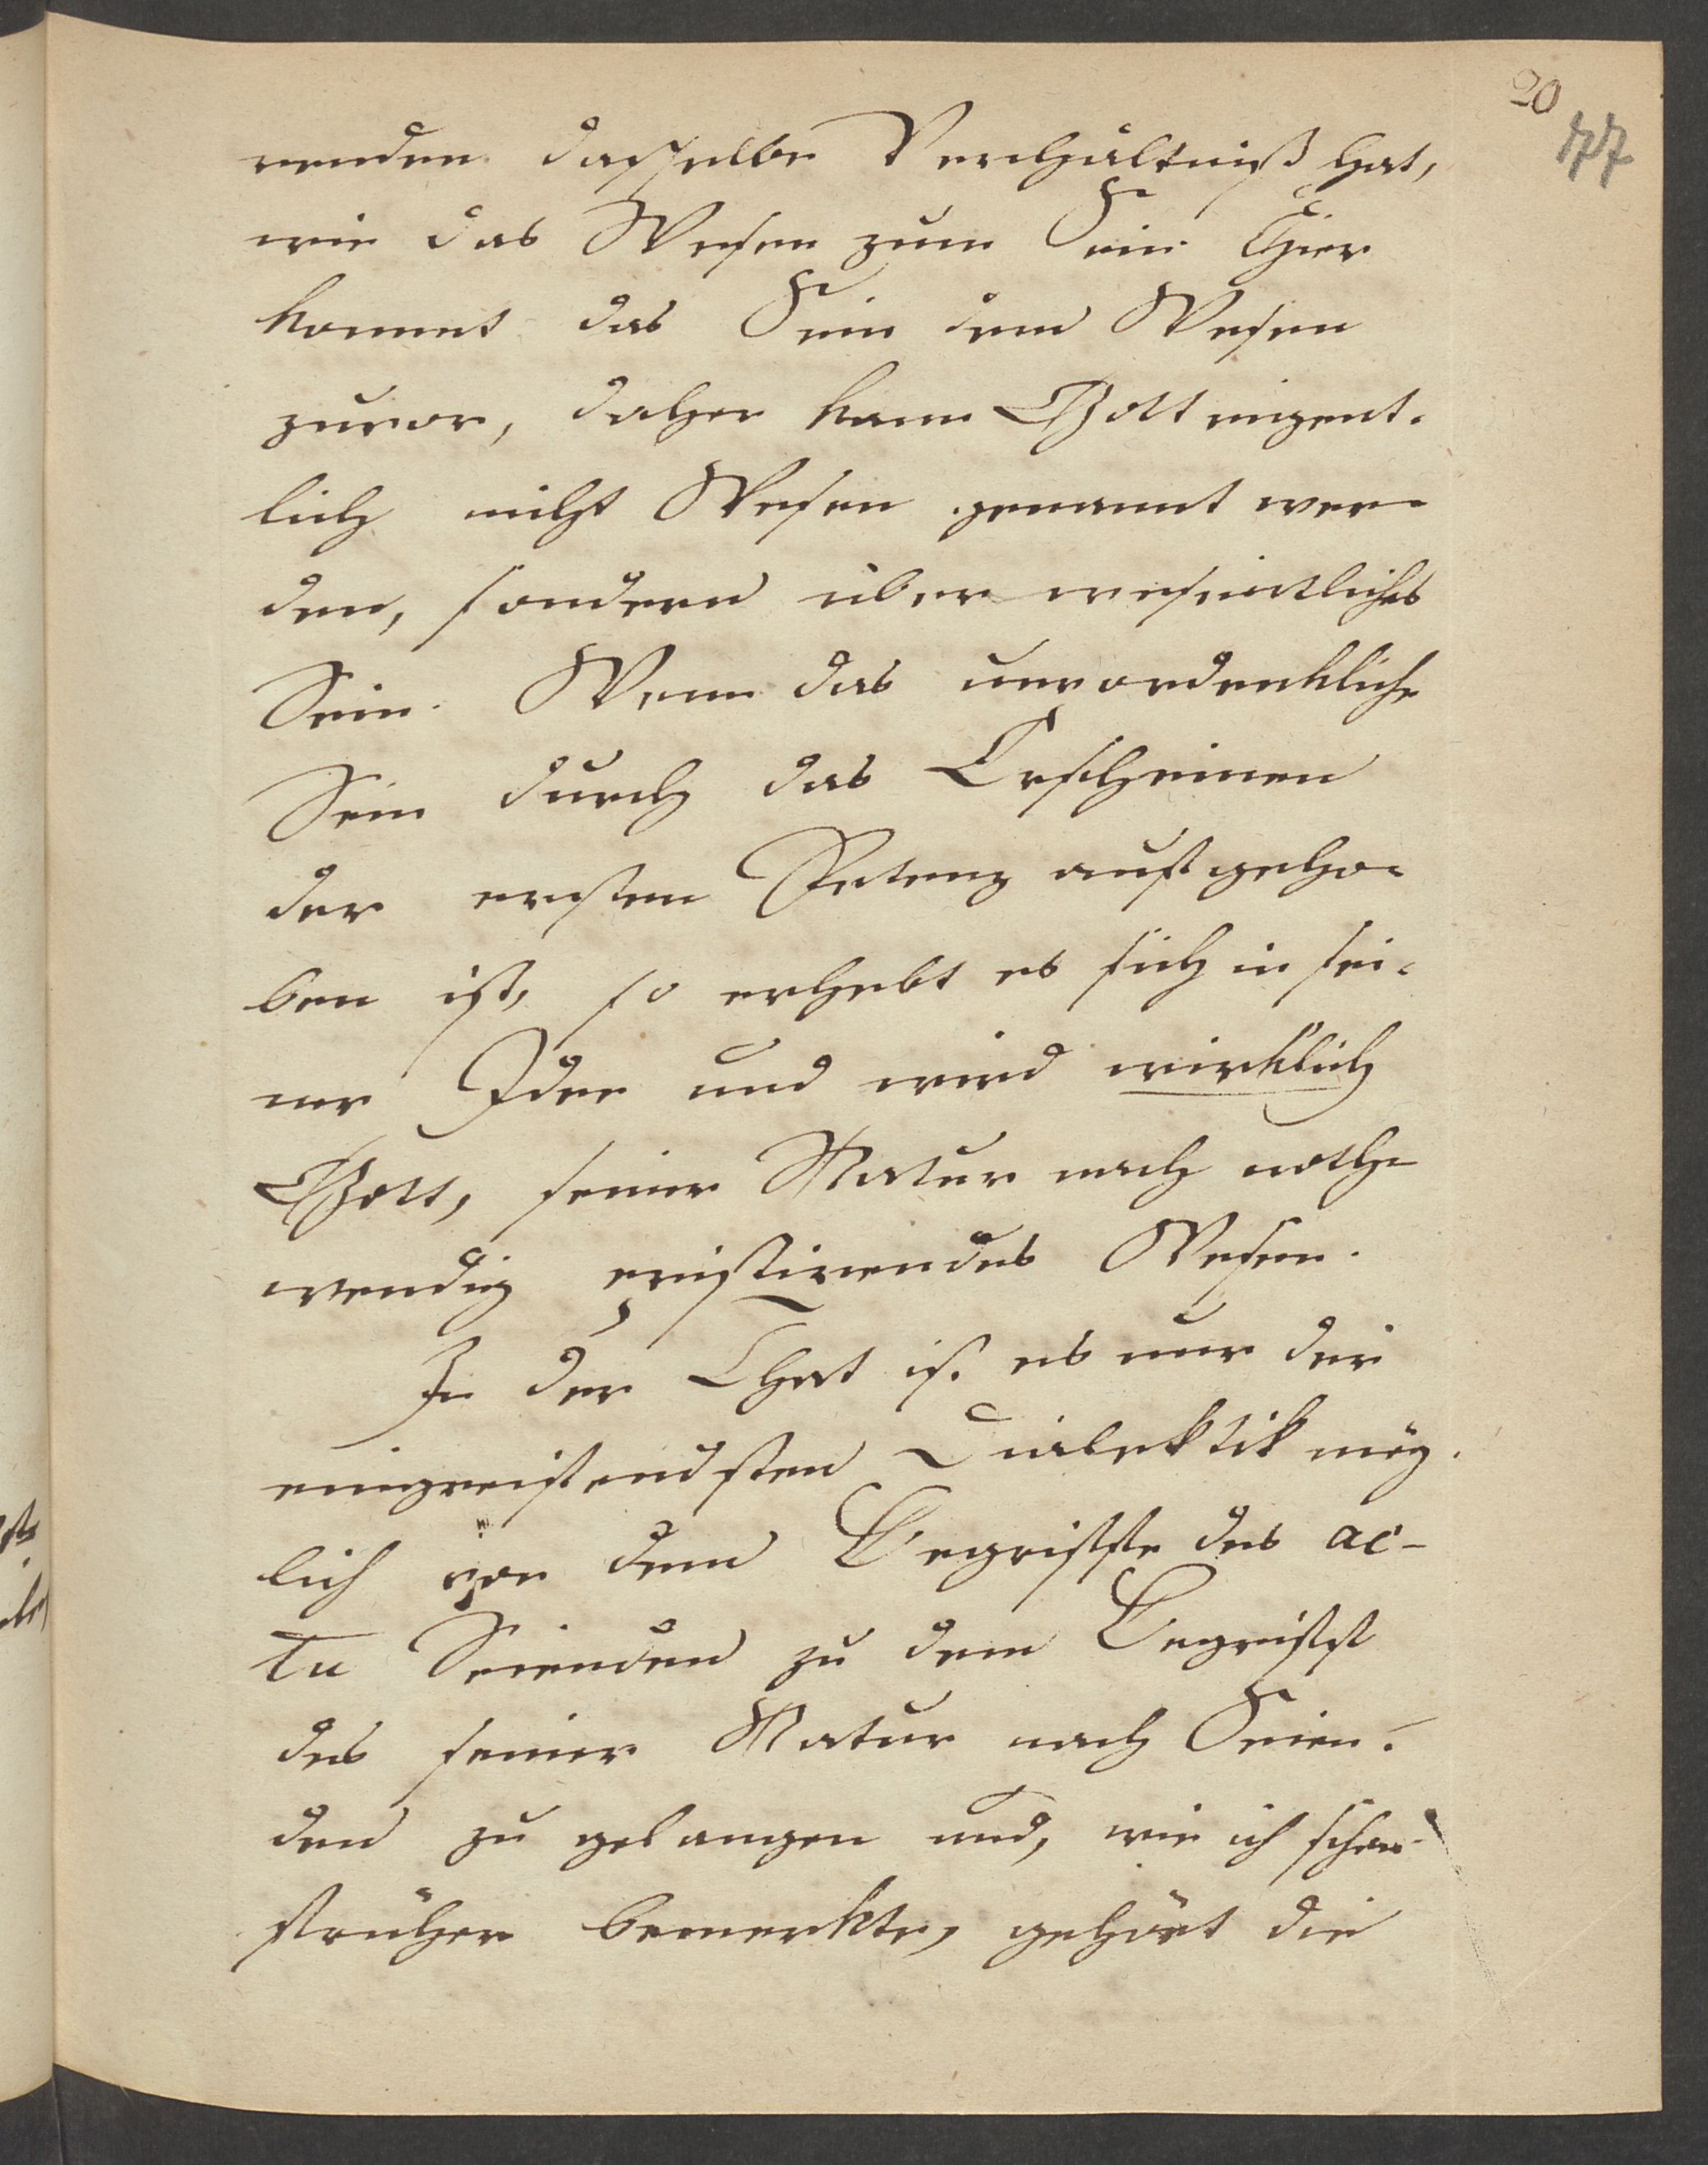 20
77
renden dasselbe Verhältniß hat,
wie das Wesen zum Sein. Hier
kommt das Sein dem Wesen
zuvor, daher kann Gott eigent-
lich nicht Wesen genannt wer-
den, sondern überwesentliches
Sein. Wenn das unvordenkliche
Sein durch das Erscheinen
der ersten Potenz aufgeho-
ben ist, so erhebt es sich in sei-
ner Idee und wird wirklich
Gott, seiner Natur nach noth-
wendig existirendes Wesen.
In der That ist es nur der
eingreifendsten Dialektik mög-
lich von dem Begriffe des ac-
tu Seienden zu dem Begriff
des seiner Natur nach Seien-
den zu gelangen und, wie ich schon
früher bemerkte, gehört die